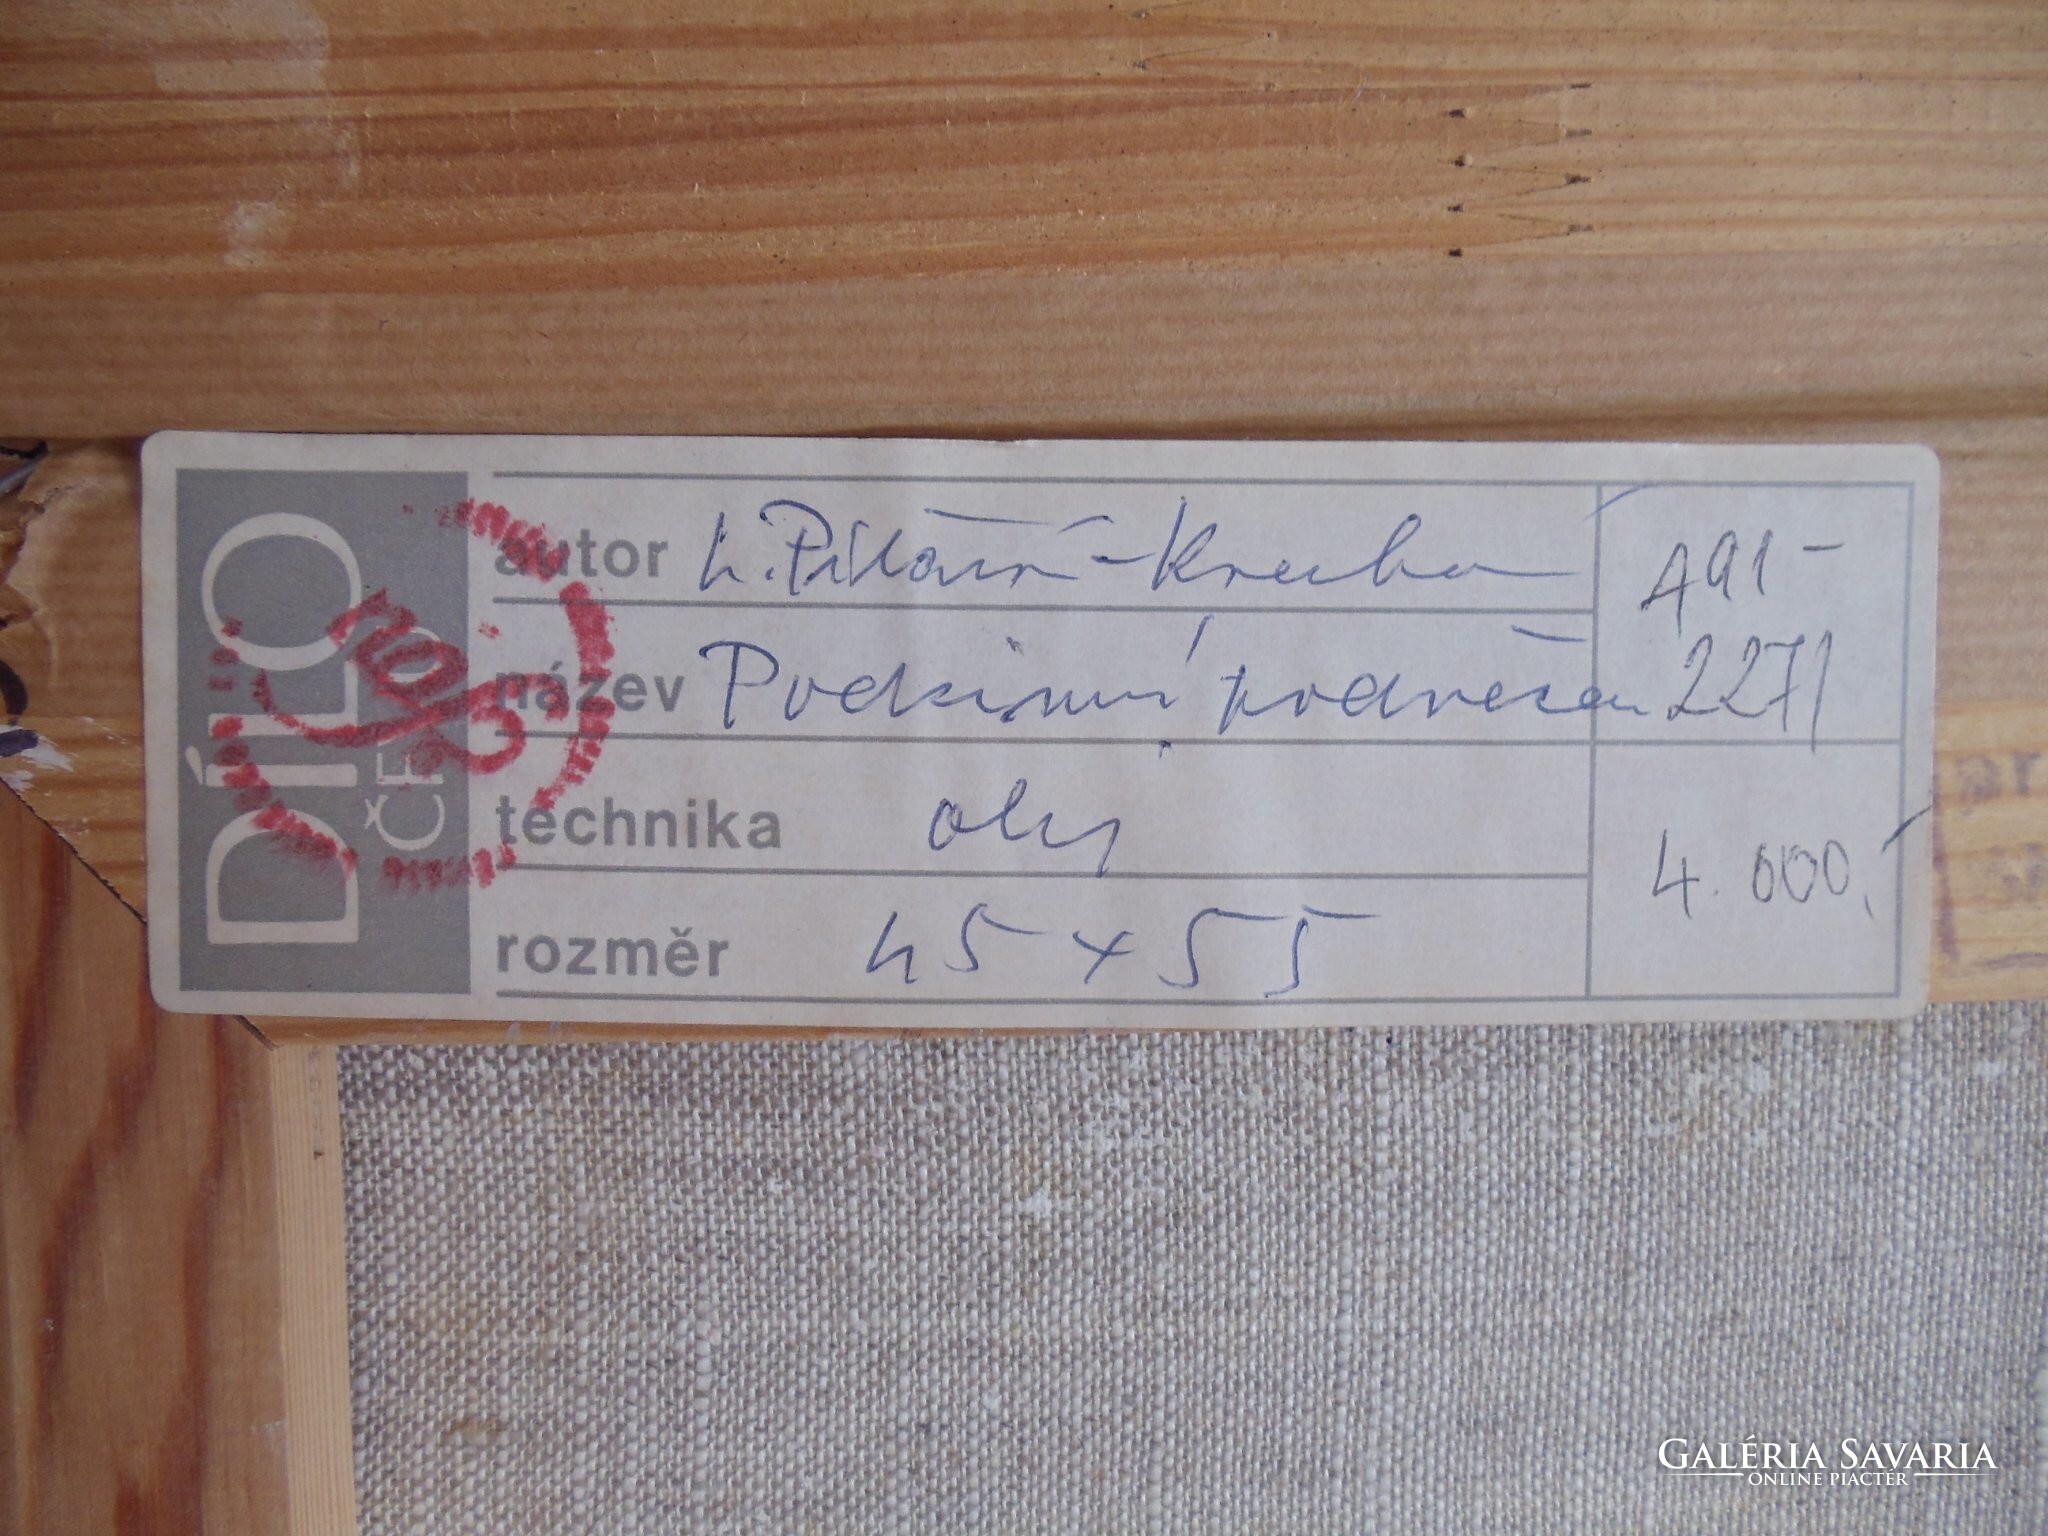 DÍLO
autor L. Pitłař-Krucha
A91-
název Podzimní podvečer
2271
technika olej
4.000,-
rozměr 45 x 55
GALÉRIA SAVARIA
ONLINE PIACTÉR